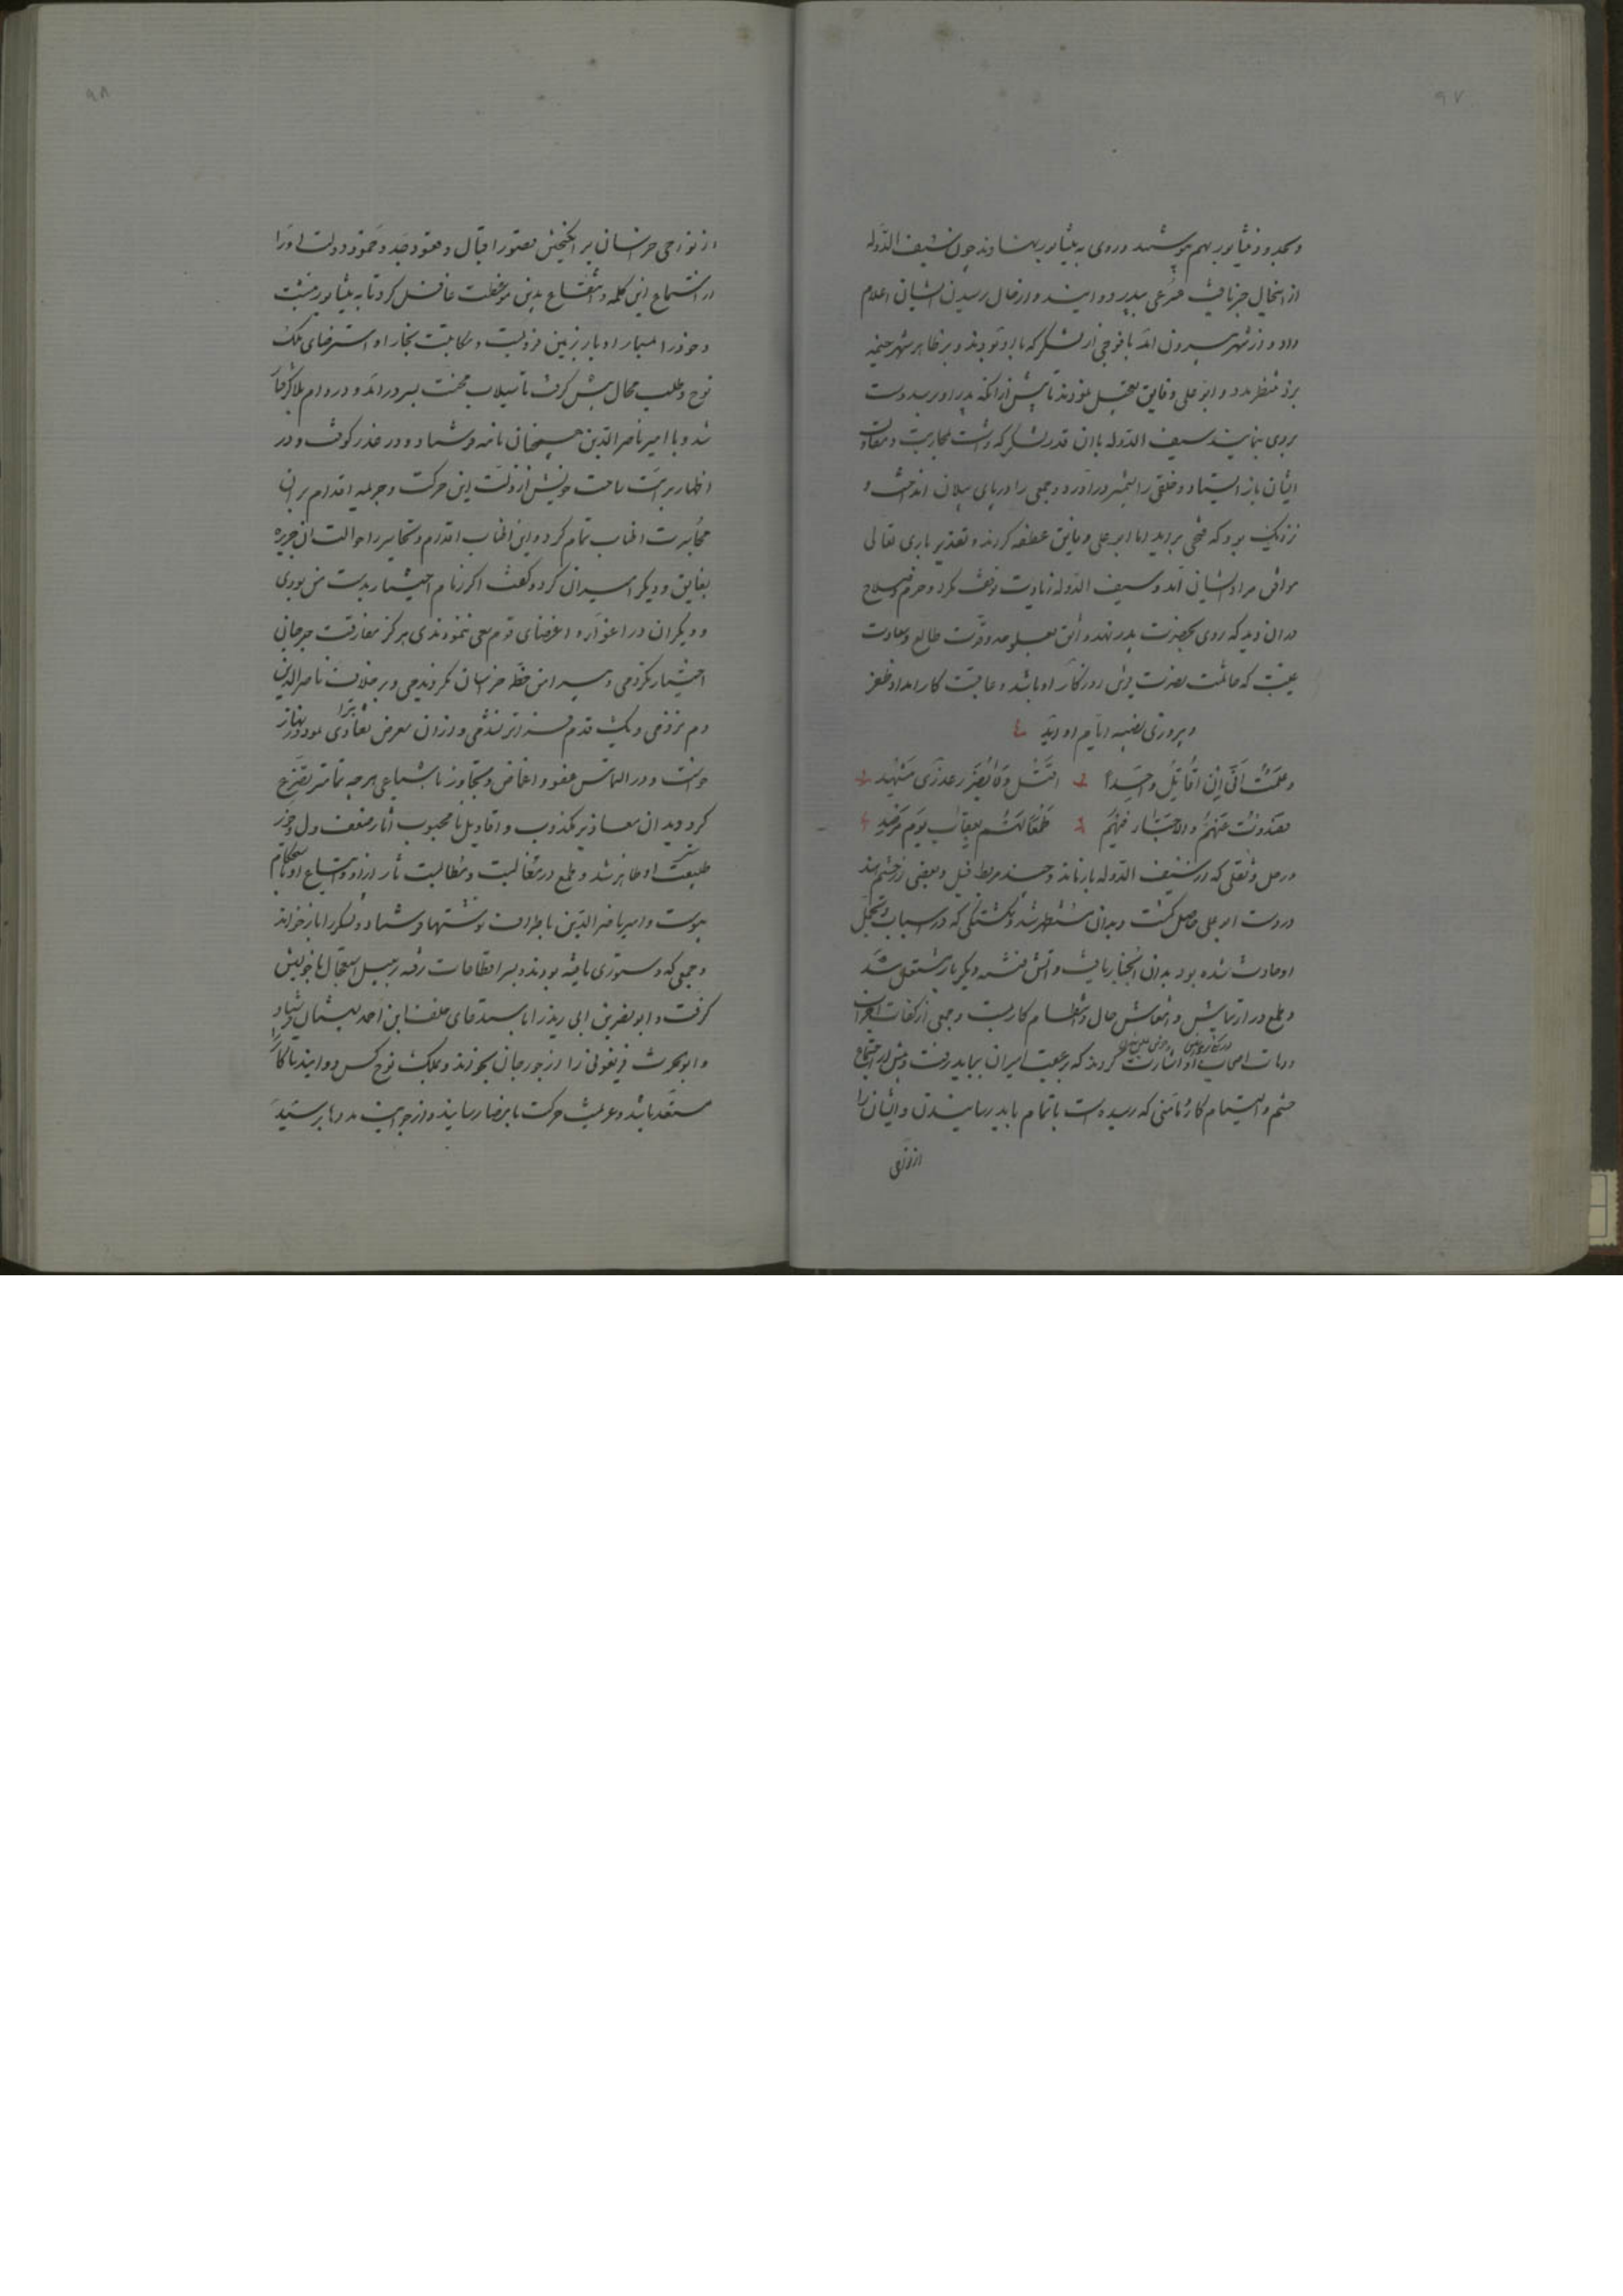 ۹۷
وبحدود نیشابور بهم پیوستند و روی به نیشابور نهادند چون سیف الدوله
از اینحال خبر یافت مسرعی بپدر دوانید و از حال رسیدن ایشان اعلام
داد و از شهر بیرون آمد با فوجی از لشکر که با او بودند و بر ظاهر شهر خیمه
بزد منتظر مدد و ابوعلی و فایق تعجیل نمودند تا پیش از آنکه پدر او برسد دست
بردی نمایند سیف الدوله با آن قدر لشکر که داشت بمحاربت و مقاومت
ایشان باز ایستاد و خلقی را بشمشیر درآورد و جمعی را در پای پیلان انداخت و
نزدیک بود که فتحی برآید اما ابوعلی و فایق عطفه کردند و تقدیر باری تعالی
موافق مراد ایشان آمد و سیف الدوله زیادت توقف نکرد و حزم و صلاح
در آن دید که روی بحضرت پدر نهد واثق بعلو جد و قوت طالع و معاودت
عقبی که خاتمت نصرت قرین روزگار او باشد و عاقبت کار امداد ظفر
و پیروزی نصیبه ایام او آید
وعلمت انی ان اقاتل واحدا اقتل ولا یضرر عدوی مشهدی
فصددت عنهم والاحبة فیهم طمعا لهم بعقاب یوم مرصد
و رحل و ثقلی که از سیف الدوله بازماند و چند مربط فیل و بعضی از حشم هند
در دست ابوعلی حاصل گشت و بدان مستظهر شد و شکستگی که در اسباب و تجمل
او حادث شده بود بدان انجبار یافت و آتش فتنه دیگر بار مشتعل شد
و طمع در ارتیاش و انتعاش حال و انتظام کار بست و جمعی از کفات
و دهات اصحاب او اشارت کردند که بر عقب ایران بباید رفت و پیش از اجتماع
حشم و التیام کار نامنی که رسیده است باتمام باید رسانیدن و ایشان را
از نواحی
۹۸
از نواحی خراسان برانگیختن قصور اقبال و قعود جد و خمود دولت او را
از استماع این کلمه و انتفاع بدین موعظت غافل کرد تا به نیشابور بنشست
و خود را بمسمار ادبار بر زمین فرو بست و مکاتبت بخارا و استرضای ملک
نوح و طلب محال پیش گرفت تا سیلاب محنت بسر درآمد و در دام بلا گرفتار
شد و با امیر ناصر الدین همچنان نامه فرستاد و در عذر کوفت و در
اظهار برائت ساحت خویش از ذلت این حرکت و جریمه اقدام بر آن
مخابرت اطناب تمام کرد و این اطناب اقدام و تجاسر را حوالت آن جریره
بفایق و دیگر اسیران کرد و گفت اگر زمام اختیار بدست من بودی
و دیگران در اغوا و اغضای قوم سعی ننمودندی هرگز مفارقت جرجان
اختیار نکردمی و سیر این خطه خراسان نکردمی و بر خلاف ناصرالدین
دم نزدمی و یک قدم فراتر ننهمی و از آن معرض تفادی نمود و زنهار
خواست و در التماس عفو و اغماض و تجاوز باشباعی هر چه تمامتر تضرع
کرد و بدان معاذیر مکذوب و اقاویل نامحبوب آثار ضعف دل و خور
طبیعت او ظاهر شد و طمع در مغالبت و مطالبت ثار ازو و اتباع او باستحکام
پیوست و امیر ناصر الدین باطراف نوشتها فرستاد و لشکر را بازخواند
و جمعی که دستوری یافته بودند و بسر اقطاعات رفته بر سبیل استعجال با خویش
گرفت و ابونصر بن ابی زید را باستدعای خلف ابن احمد بسیستان فرستاد
و ابوالحرث فریغونی را از جوزجان بخواند و بملک نوح کس دوانید تا کار را
مستعد باشد و عزیمت حرکت بامضا رساند و از جوانب مددها برسید